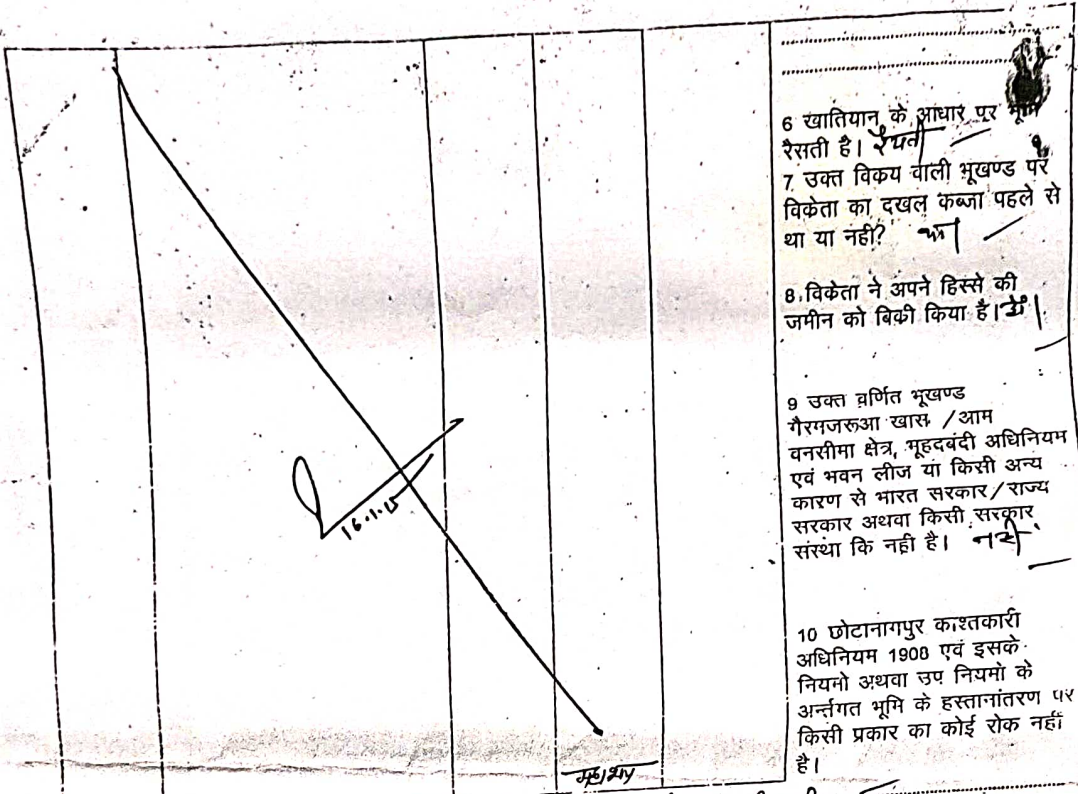 6 खातियान के आधार पर भूमि
रैसती है। रैयती
7 उक्त विकय वाली भूखण्ड पर
विकेता का दखल कब्जा पहले से
था या नही?
8 विकेता ने अपने हिस्से की
जमीन को बिक्री किया है।
9 उक्त वर्णित भूखण्ड
गैरमजरूआ खास /आम
वनसीमा क्षेत्र, भूहदबंदी अधिनियम
एवं भवन लीज या किसी अन्य
कारण से भारत सरकार/राज्य
सरकार अथवा किसी सरकार
संस्था कि नही है। नहीं
10 छोटानागपुर काश्तकारी
अधिनियम 1908 एवं इसके
नियमो अथवा उप नियमो के
अर्न्तगत भूमि के हस्तानांतरण पर
किसी प्रकार का कोई रोक नहीं
है।
16.1.15